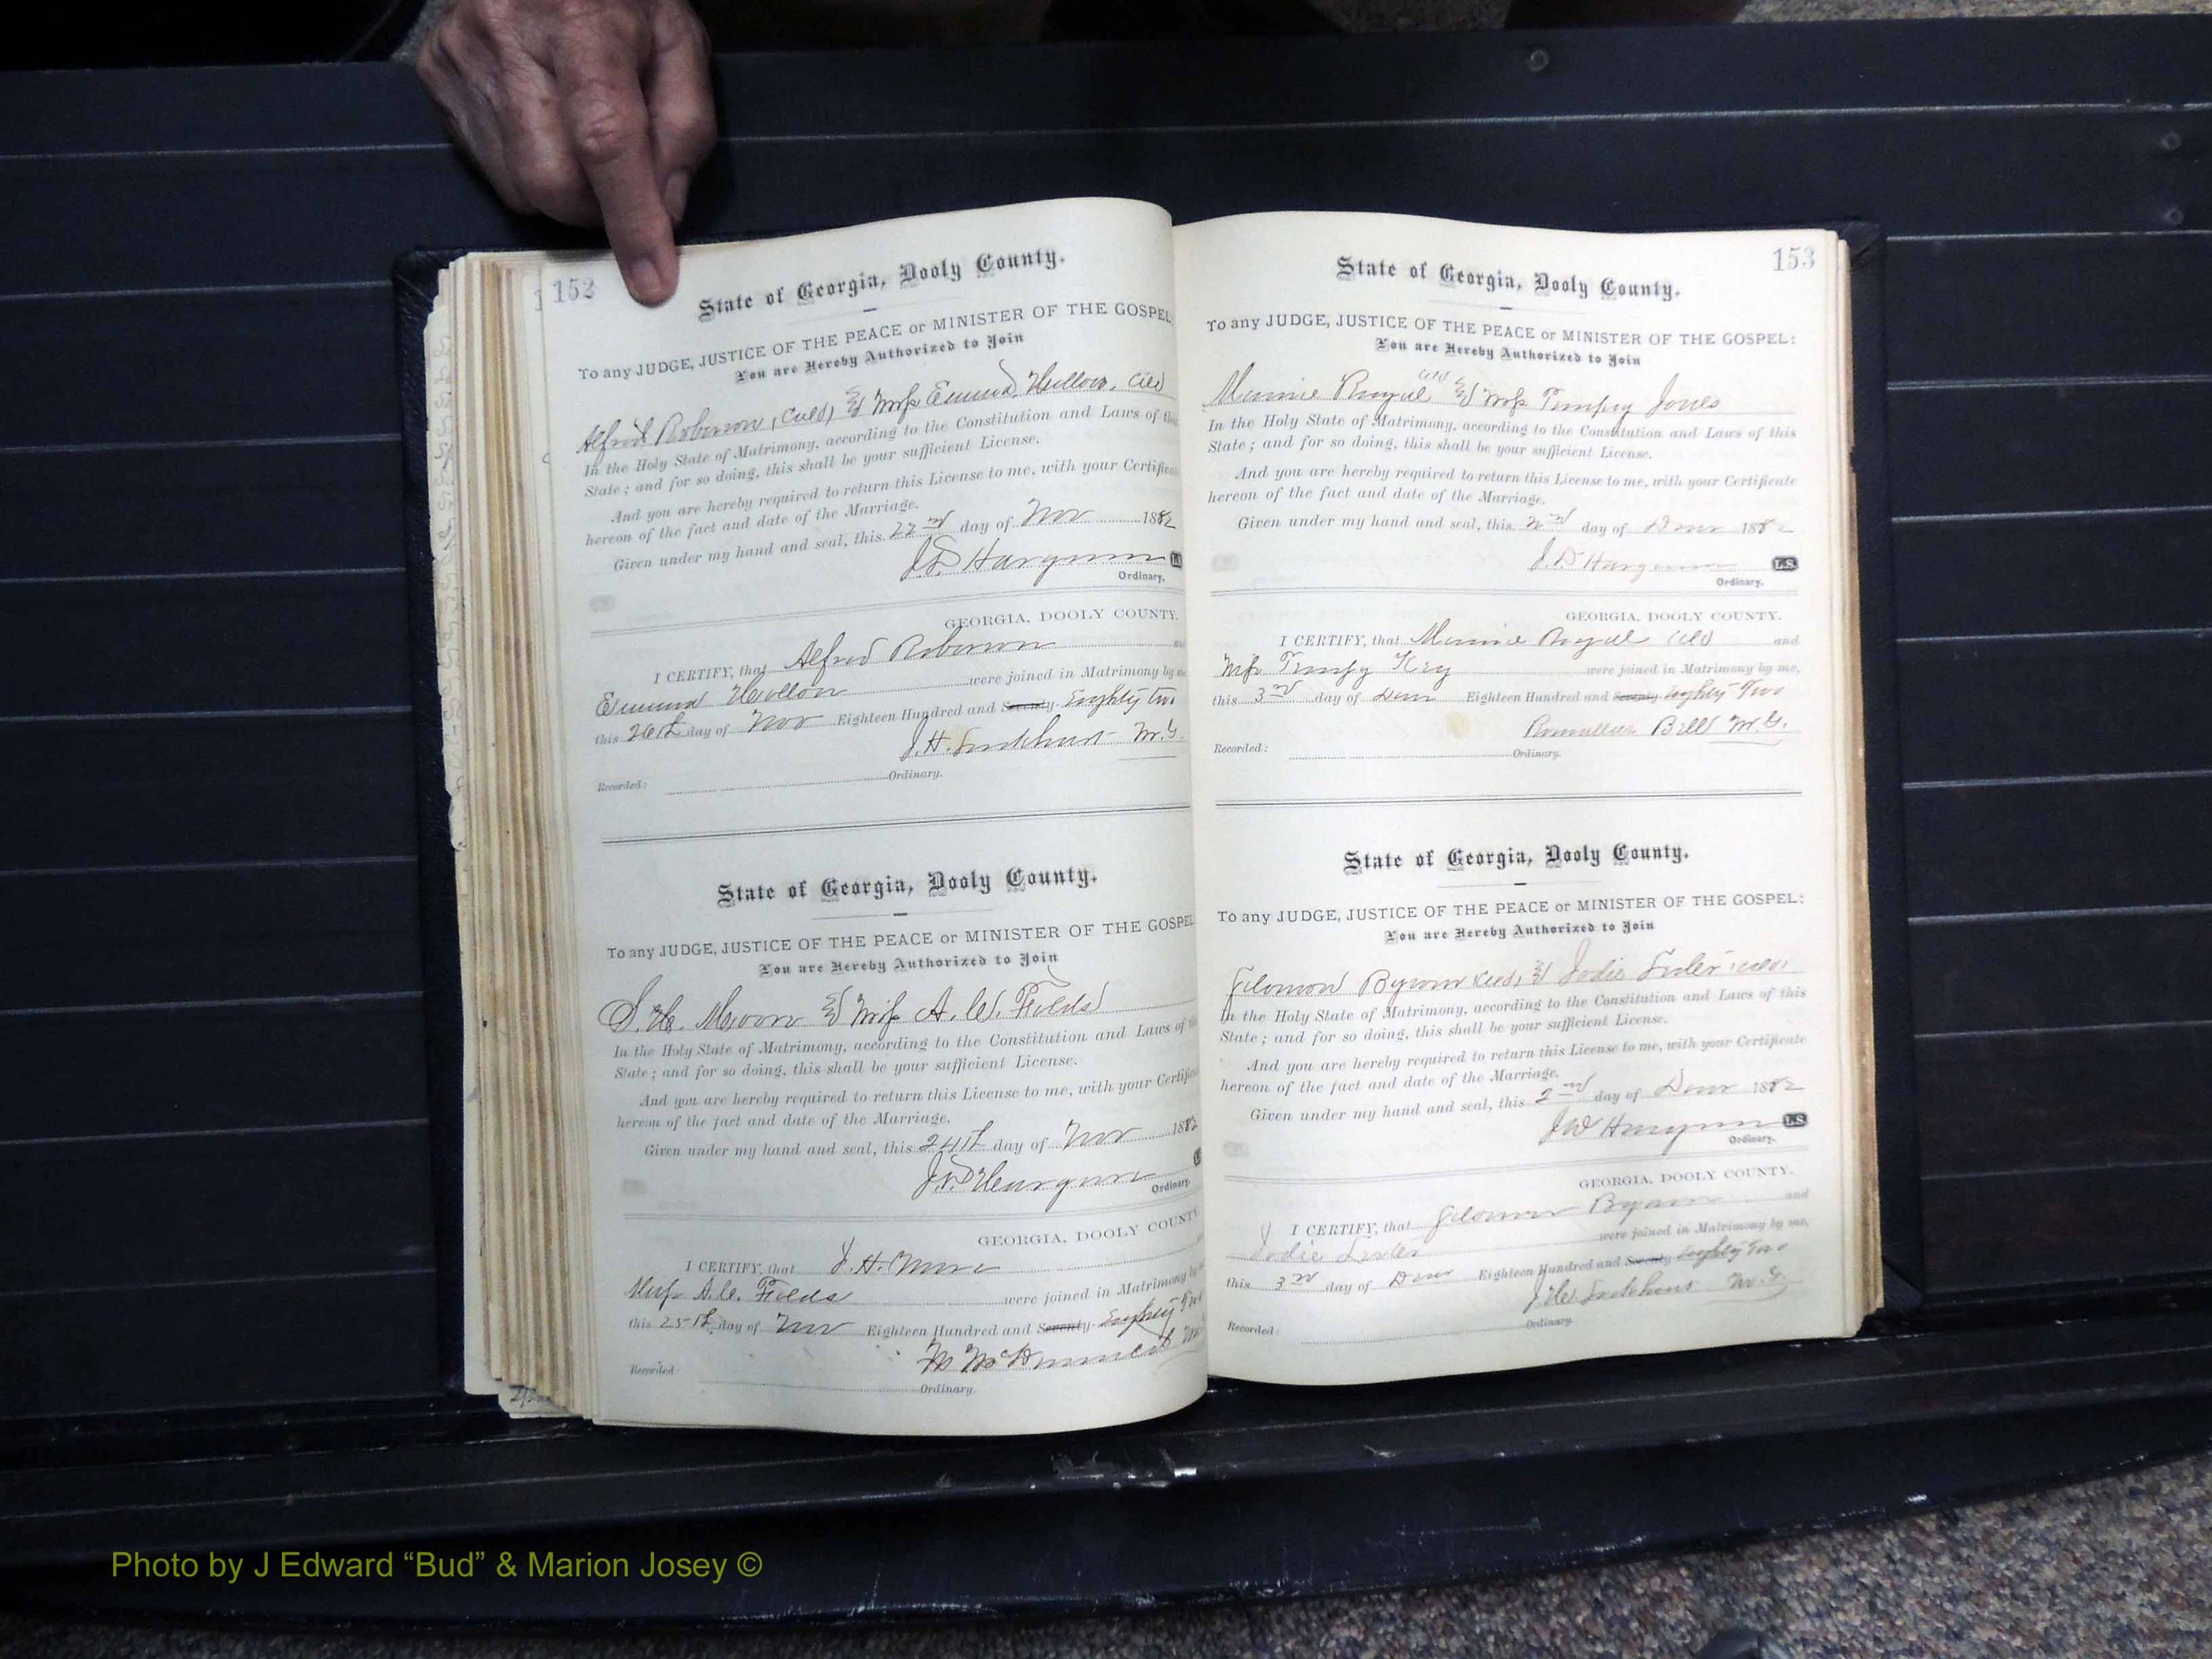 152
State of Georgia, Dooly County.
To any JUDGE, JUSTICE OF THE PEACE or MINISTER OF THE GOSPEL
You are Hereby Authorized to Join
Alfred Roberson, (Cold) & Miss Emma
In the Holy State of Matrimony, according to the Constitution and Laws of this
State; and for so doing, this shall be your sufficient License.
And you are hereby required to return this License to me, with your Certificate
hereon of the fact and date of the Marriage.
Given under my hand and seal, this 22nd day of Nov 1882
J.D. Hargrove
Ordinary.
GEORGIA, DOOLY COUNTY.
I CERTIFY, that Alfred Roberson and
Emma were joined in Matrimony by me
this 26th day of Nov Eighteen Hundred and Seventy Eighty two
J. H. M.G.
Recorded: Ordinary.
State of Georgia, Dooly County.
To any JUDGE, JUSTICE OF THE PEACE or MINISTER OF THE GOSPEL
You are Hereby Authorized to Join
S. H. Moore & Miss A. C. Fields
In the Holy State of Matrimony, according to the Constitution and Laws of
State; and for so doing, this shall be your sufficient License.
And you are hereby required to return this License to me, with your Certific
hereon of the fact and date of the Marriage.
Given under my hand and seal, this 24th day of Nov 1882
J.D. Hargrove
Ordinary.
GEORGIA, DOOLY COUNTY
I CERTIFY, that S. H. Moore
Miss A. C. Fields were joined in Matrimony by
this 25th day of Nov Eighteen Hundred and Seventy Eighty Two
Recorded: Ordinary.
153
State of Georgia, Dooly County.
To any JUDGE, JUSTICE OF THE PEACE or MINISTER OF THE GOSPEL:
You are Hereby Authorized to Join
Royal & Miss Jones
In the Holy State of Matrimony, according to the Constitution and Laws of this
State; and for so doing, this shall be your sufficient License.
And you are hereby required to return this License to me, with your Certificate
hereon of the fact and date of the Marriage.
Given under my hand and seal, this 2nd day of Decr 1882
J.D. Hargrove L.S.
Ordinary.
GEORGIA, DOOLY COUNTY.
I CERTIFY, that Royal and
Miss Key were joined in Matrimony by me,
this 3rd day of Decr Eighteen Hundred and Seventy Eighty Two
Bell M.G.
Recorded: Ordinary.
State of Georgia, Dooly County.
To any JUDGE, JUSTICE OF THE PEACE or MINISTER OF THE GOSPEL:
You are Hereby Authorized to Join
Solomon Byrom & Jodie
In the Holy State of Matrimony, according to the Constitution and Laws of this
State; and for so doing, this shall be your sufficient License.
And you are hereby required to return this License to me, with your Certificate
hereon of the fact and date of the Marriage.
Given under my hand and seal, this 2nd day of Decr 1882
J.D. Hargrove L.S.
Ordinary.
GEORGIA, DOOLY COUNTY.
I CERTIFY, that Solomon Byrom and
Jodie were joined in Matrimony by me,
this 3rd day of Decr Eighteen Hundred and Seventy Eighty Two
J. H. M.G.
Recorded: Ordinary.
Photo by J Edward “Bud” & Marion Josey ©